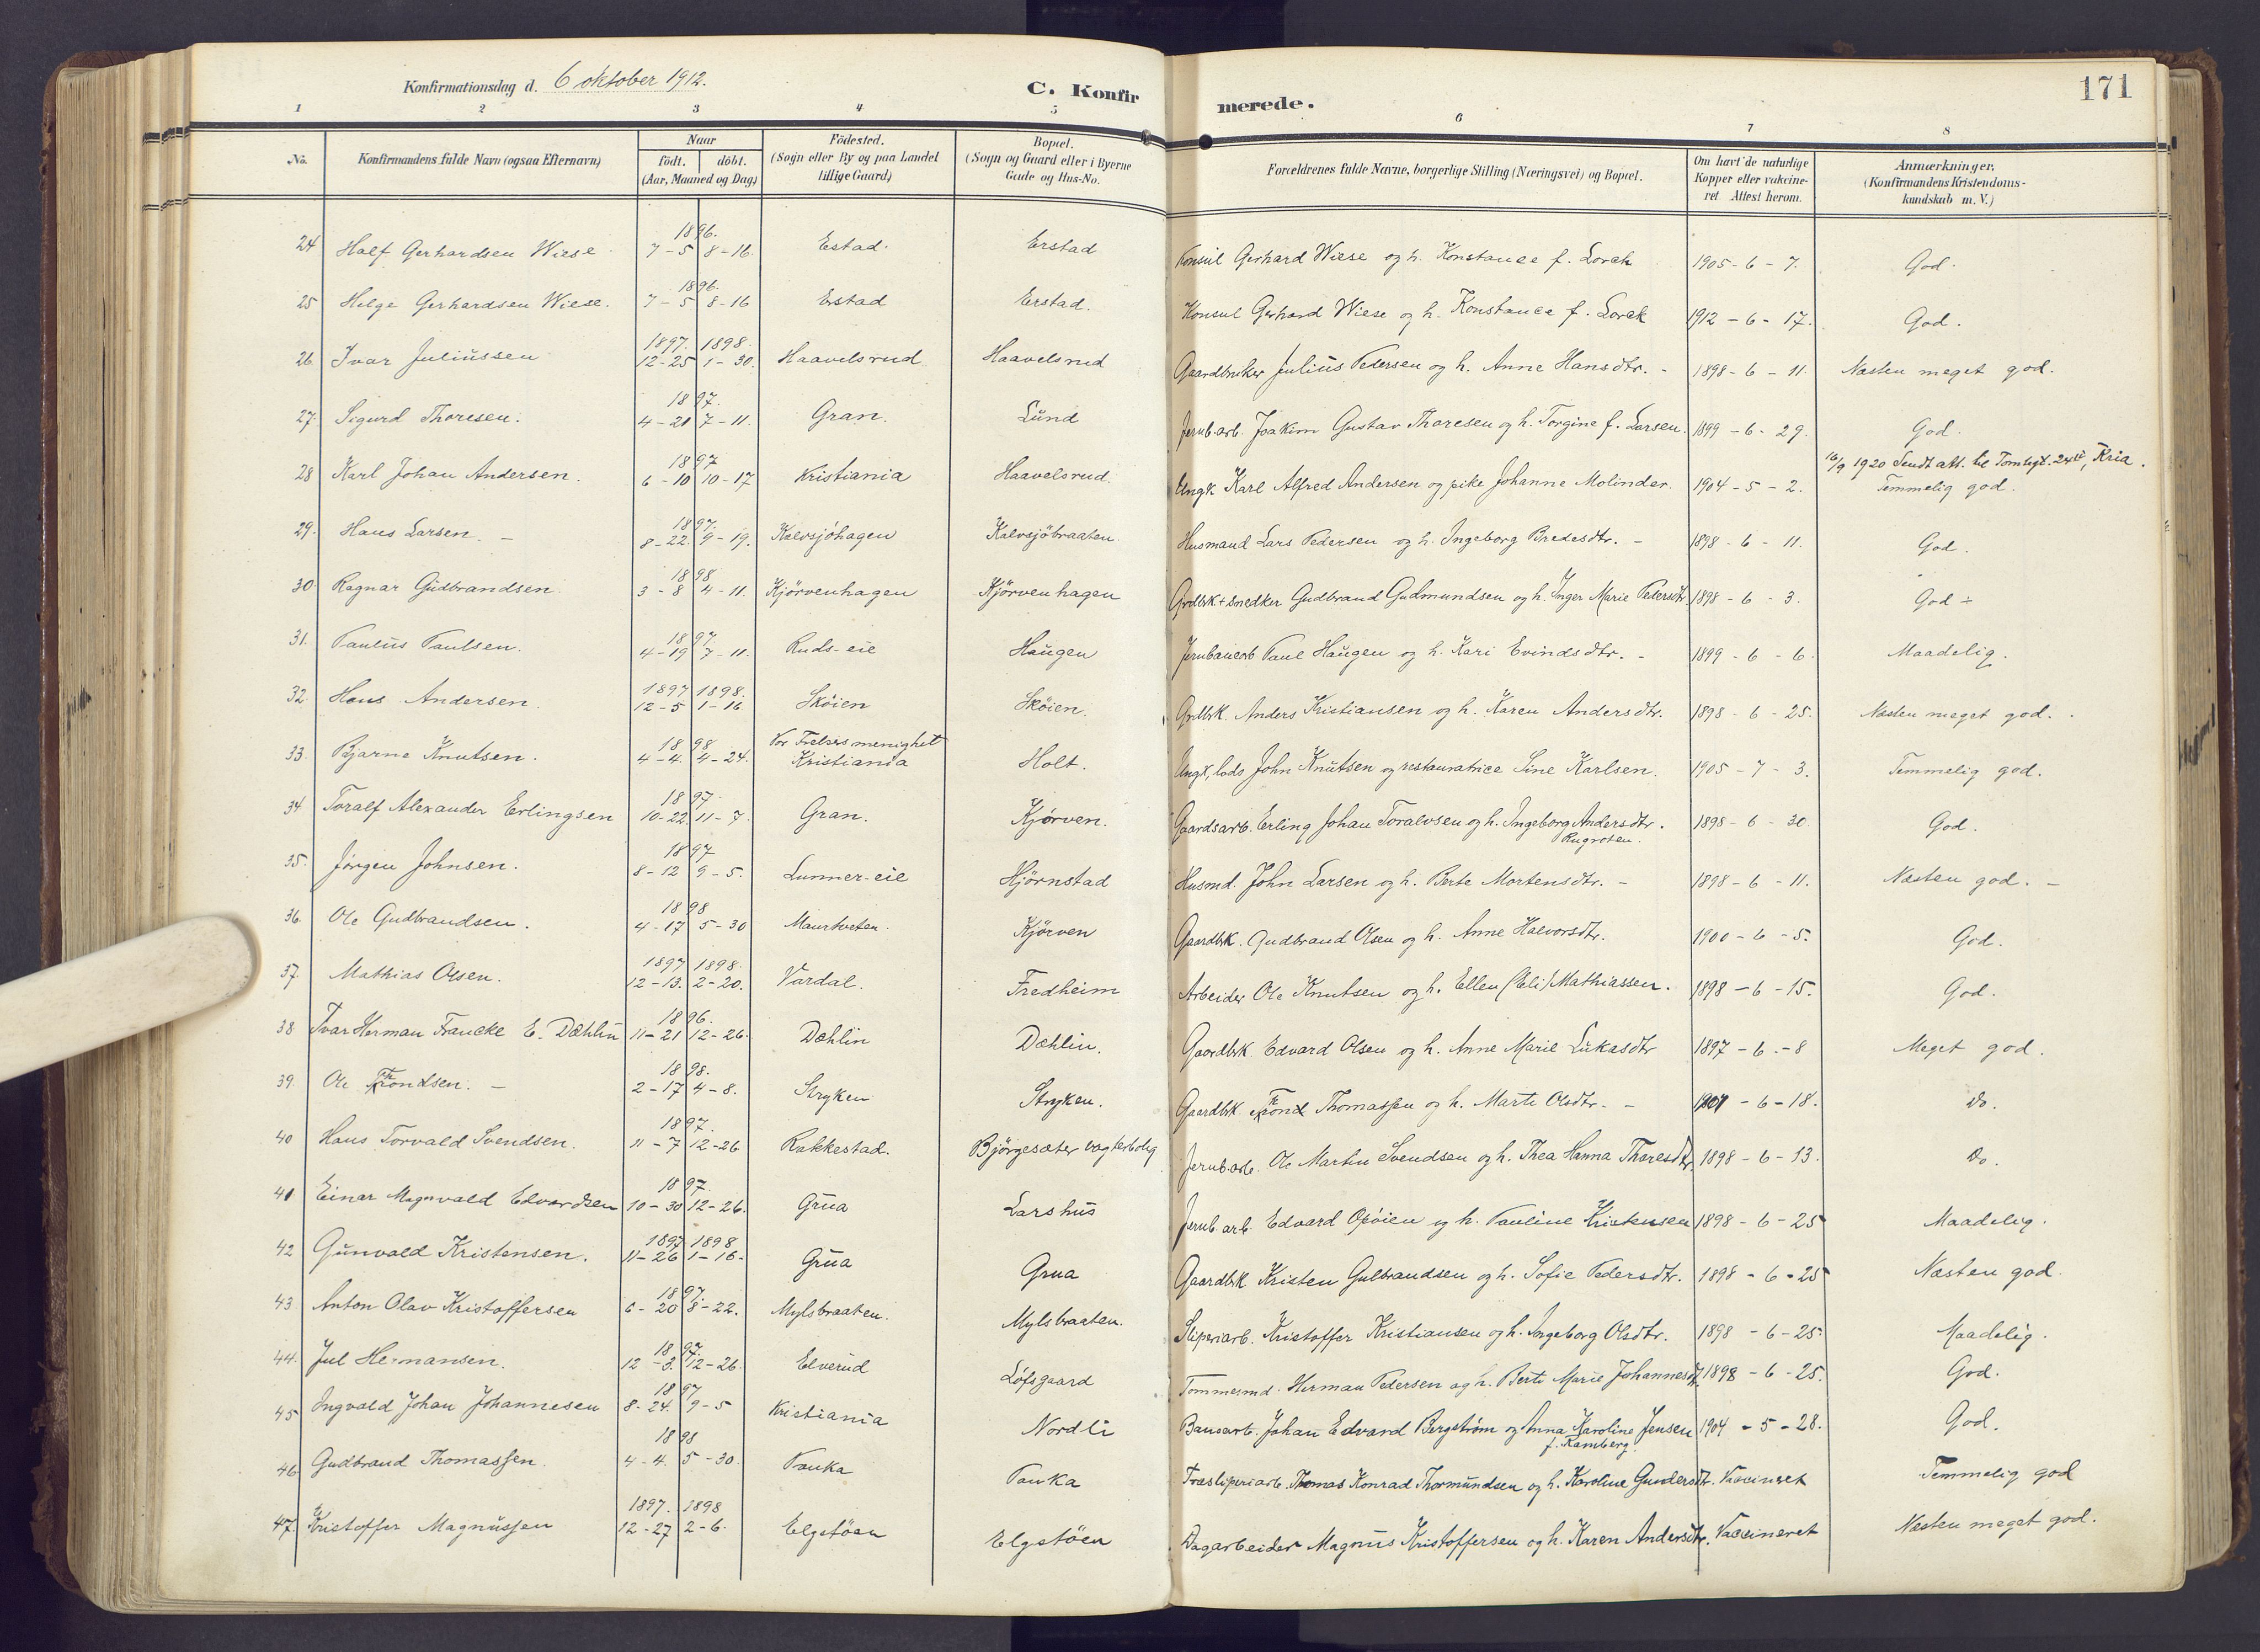 Konfirmationsdag d. 6 oktober 1912.
C. Konfirmerede.
171
1 2 3 4 5 6 7 8
No. Konfirmandens fulde Navn (ogsaa Efternavn) Naar födt. döbt. (Aar, Maaned og Dag) Födested. (Sogn eller By og paa Landet tillige Gaard) Bopæl. (Sogn og Gaard eller i Byerne Gade og Hus-No. Forældrenes fulde Navne, borgerlige Stilling (Næringsvei) og Bopæl. Om havt de naturlige Kopper eller vakcineret Attest herom. Anmærkninger. (Konfirmandens Kristendomskundskab m. V.)
24 Half Gerhardsen Wiese 1896. 7-5 8-16. Estad. Erstad Konsul Gerhard Wiese og h. Konstance f. Lorck 1905-6-7. God.
25 Helge Gerhardsen Wiese. 1896. 7-5 8-16 Erstad Erstad. Konsul Gerhard Wiese og h. Konstance f. Lorck 1912-6-17. God.
26 Ivar Juliussen 1897. 1898. 12-25 1-30. Haavelsrud Haavelsrud Gaardbruker Julius Pedersen og h. Anne Hansdtr. - 1898-6-11. Næsten meget god.
27. Sigurd Thoresen. 1897. 4-21 7-11. Gran. Lund Jernb.arb. Joakim Gustav Thoresen og h. Torgine f. Larsen. 1899-6-29. God.
16/9 1920 Sendt att. til Tomtegt. 24 III, Kria.
28 Karl Johan Andersen. 1897 6-10 10-17 Kristiania Haavelsrud. Ungk Karl Alfred Andersen og pike Johanne Molinder. 1904-5-2. Temmelig god.
29. Hans Larsen. - 1897. 8-22. 9-19. Kalvsjöhagen Kalvsjöbraaten. Husmand Lars Pedersen og h. Ingeborg Bredesdtr. - 1898-6-11. God.
30. Ragnar Gudbrandsen. 1898 3-8 4-11. Kjörvenhagen Kjörvenhagen Grdbk + snedker Gudbrand Gudmundsen og h. Inger Marie Pedersdtr. 1898-6-3. God ÷
31. Paulus Paulsen. 1897. 4-19 7-11. Ruds-eie Haugen Jernbanearb Paul Haugen og h. Kari Evindsdtr. - 1899-6-6. Maadelig.
32. Hans Andersen. 1897 1898. 12-5 1-16 Sköien Sköien. Grdbk. Anders Kristiansen og h. Karen Andersdtr. 1898-6-25. Næsten meget god.
33. Bjarne Knutsen. 1898 4-4. 4-24. Vor Frelsers menighet Kristiania Holt. Ungk, lods John Knutsen og restauratrice Sine Karlsen. 1905-7-3. Temmelig god.
34 Toralf Alexander Erlingsen 1897 10-22. 11-7. Gran. Kjørven. Gaardsarb. Erling Johan Toralvsen og h. Ingeborg Andersdtr. Rugroten. 1898-6-30. God.
35. Jörgen Johnsen. 1897 8-12 9-5. Lunner-eie Hjörnstad Husmd. John Larsen og h. Berte Mortensdtr. - 1898-6-11. Næsten god. -
36. Ole Gudbrandsen. 1898 4-17 5-30 Maurtveten Kjörven Gaardbk. Gudbrand Olsen og h. Anne Halvorsdtr. 1900-6-5. God.
37. Mathias Olsen. 1897 1898. 12-13. 2-20. Vardal. Fredheim Arbeider Ole Knutsen og h. Ellen (Eli) Mathiassen. 1898-6-15. God.
38 Ivar Herman Francke E. Dæhlin 1896. 11-21 12-26. Dæhlin Dæhlin. Gaardbk. Edvard Olsen og h. Anne Marie Lukasdtr 1897-6-8 Meget god.
39. Ole Throndsen. - 1898. 2-17 4-8. Stryken Stryken. Gaardbk. Thrond Thomassen og h. Marte Olsdtr. - 1901-6-18. Do.
40 Hans Torvald Svendsen. 1897. 11-7 12-26 Rakkestad. Björgesæter vogterbolig Jernb.arb. Ole Martin Svendsen og h. Thea Hanna Thoresdtr 1898-6-13. Do.
41 Einar Magnvald Edvardsen 1897. 10-30 12-26. Grua Larshus Jernb.arb. Edvard Opöien og h. Pauline Kristensen 1898-6-25 Maadelig.
42 Gunvald Kristensen. 1897 1898 11-26 1-16. Grua Grua Gaardbk Kristen Gulbrandsen og h. Sofie Pedersdtr. 1898-6-25 Næsten god.
43. Anton Olav Kristoffersen 1897. 6-20 8-22. Mylsbraaten. Mylsbraaten. Sliperiarb. Kristoffer Kristiansen og h. Ingeborg Olsdtr. 1898-6-25. Maadelig.
44. Jul Hermansen. 1897. 12-3. 12-26. Elverud Løfsgaard Tømmermd. Herman Pedersen og h. Berte Marie Johannesdtr. 1898-6-25. God.
45 Ingvald Johan Johannesen 1897 8-24. 9-5 Kristiania Nordli Banearb. Johan Edvard Bergstrøm og Anna Karoline Jensen f. Ramberg. 1904-5-28. God.
46. Gudbrand Thomassen. 1898 4-4. 5-30. Pauka Pauka Træsliperiarb. Thomas Konrad Thormundsen og h. Karoline Gundersdtr. Vaccineret Temmelig god
47. Kristoffer Magnussen 1897. 1898 12-27 2-6. Elgstöen Elgstöen Dagarbeider Magnus Kristoffersen og h. Karen Andersdtr. Vaccineret Næsten meget god.